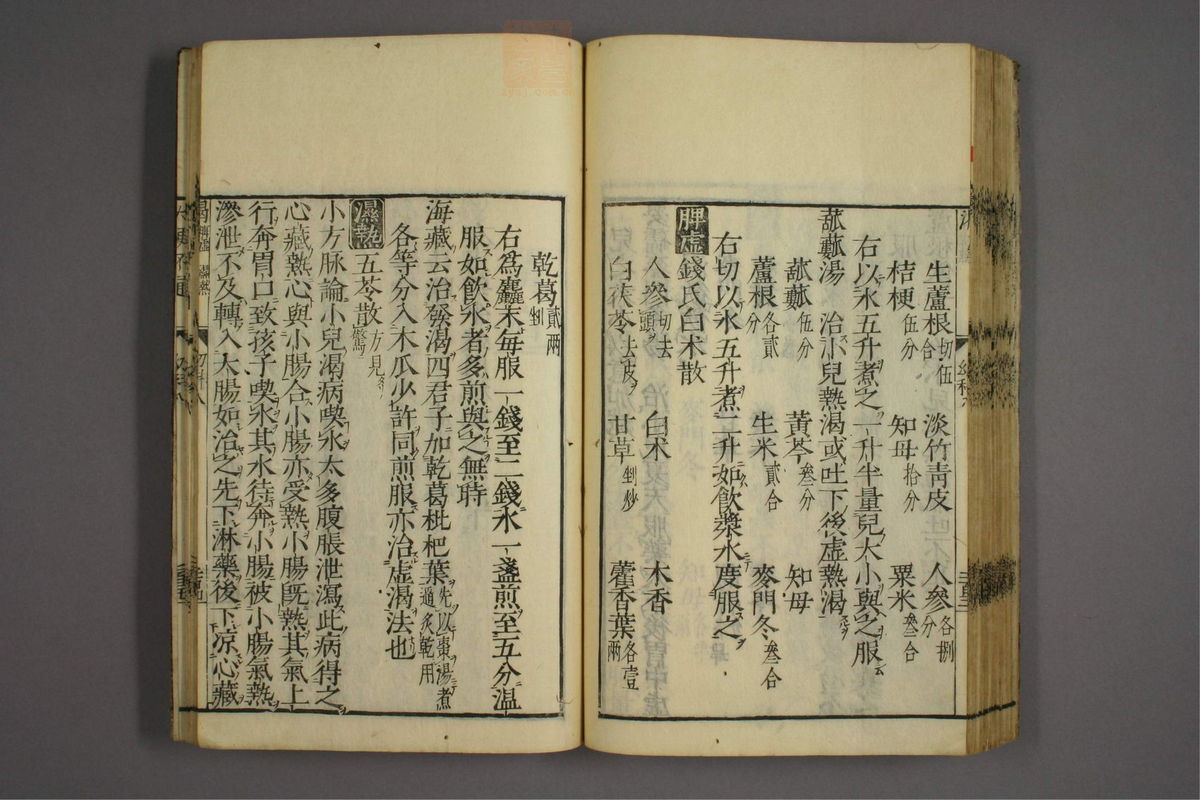 生蘆根切伍合 淡竹青皮 人參各捌分
桔梗伍分 知母拾分 粟米叁合
右以水五升煮之一升半量兒大小與之服云
菰蓺湯 治小兒熱渴或吐下後虛熱渴
菰蓺伍分 黃芩叁分 知母
蘆根各貳分 生米貳合 麥門冬叁合
右切以水五升煮二升如飲漿水度服之
脾虛 錢氏白术散
人參切去頭 白术 木香
白茯苓去皮 甘草剉炒 藿香葉各壹兩
乾葛貳兩剉
右爲麤末每服一錢至二錢水一盞煎至五分溫
服如飲水者多煎與之無時
海藏云治發渴四君子加乾葛枇杷葉先以棗湯煮過炙乾用
各等分入木瓜少許同煎服亦治虛渴法也
濕熱 五苓散方見驚
小方脉論小兒渴病喫水太多腹脹泄瀉此病得之
心藏熱心與小腸合小腸亦受熱小腸旣熱其氣上
行奔胃口致孩子喫水其水待奔小腸被小腸氣熱
滲泄不及轉入大腸如治之先下淋藥後下凉心藏